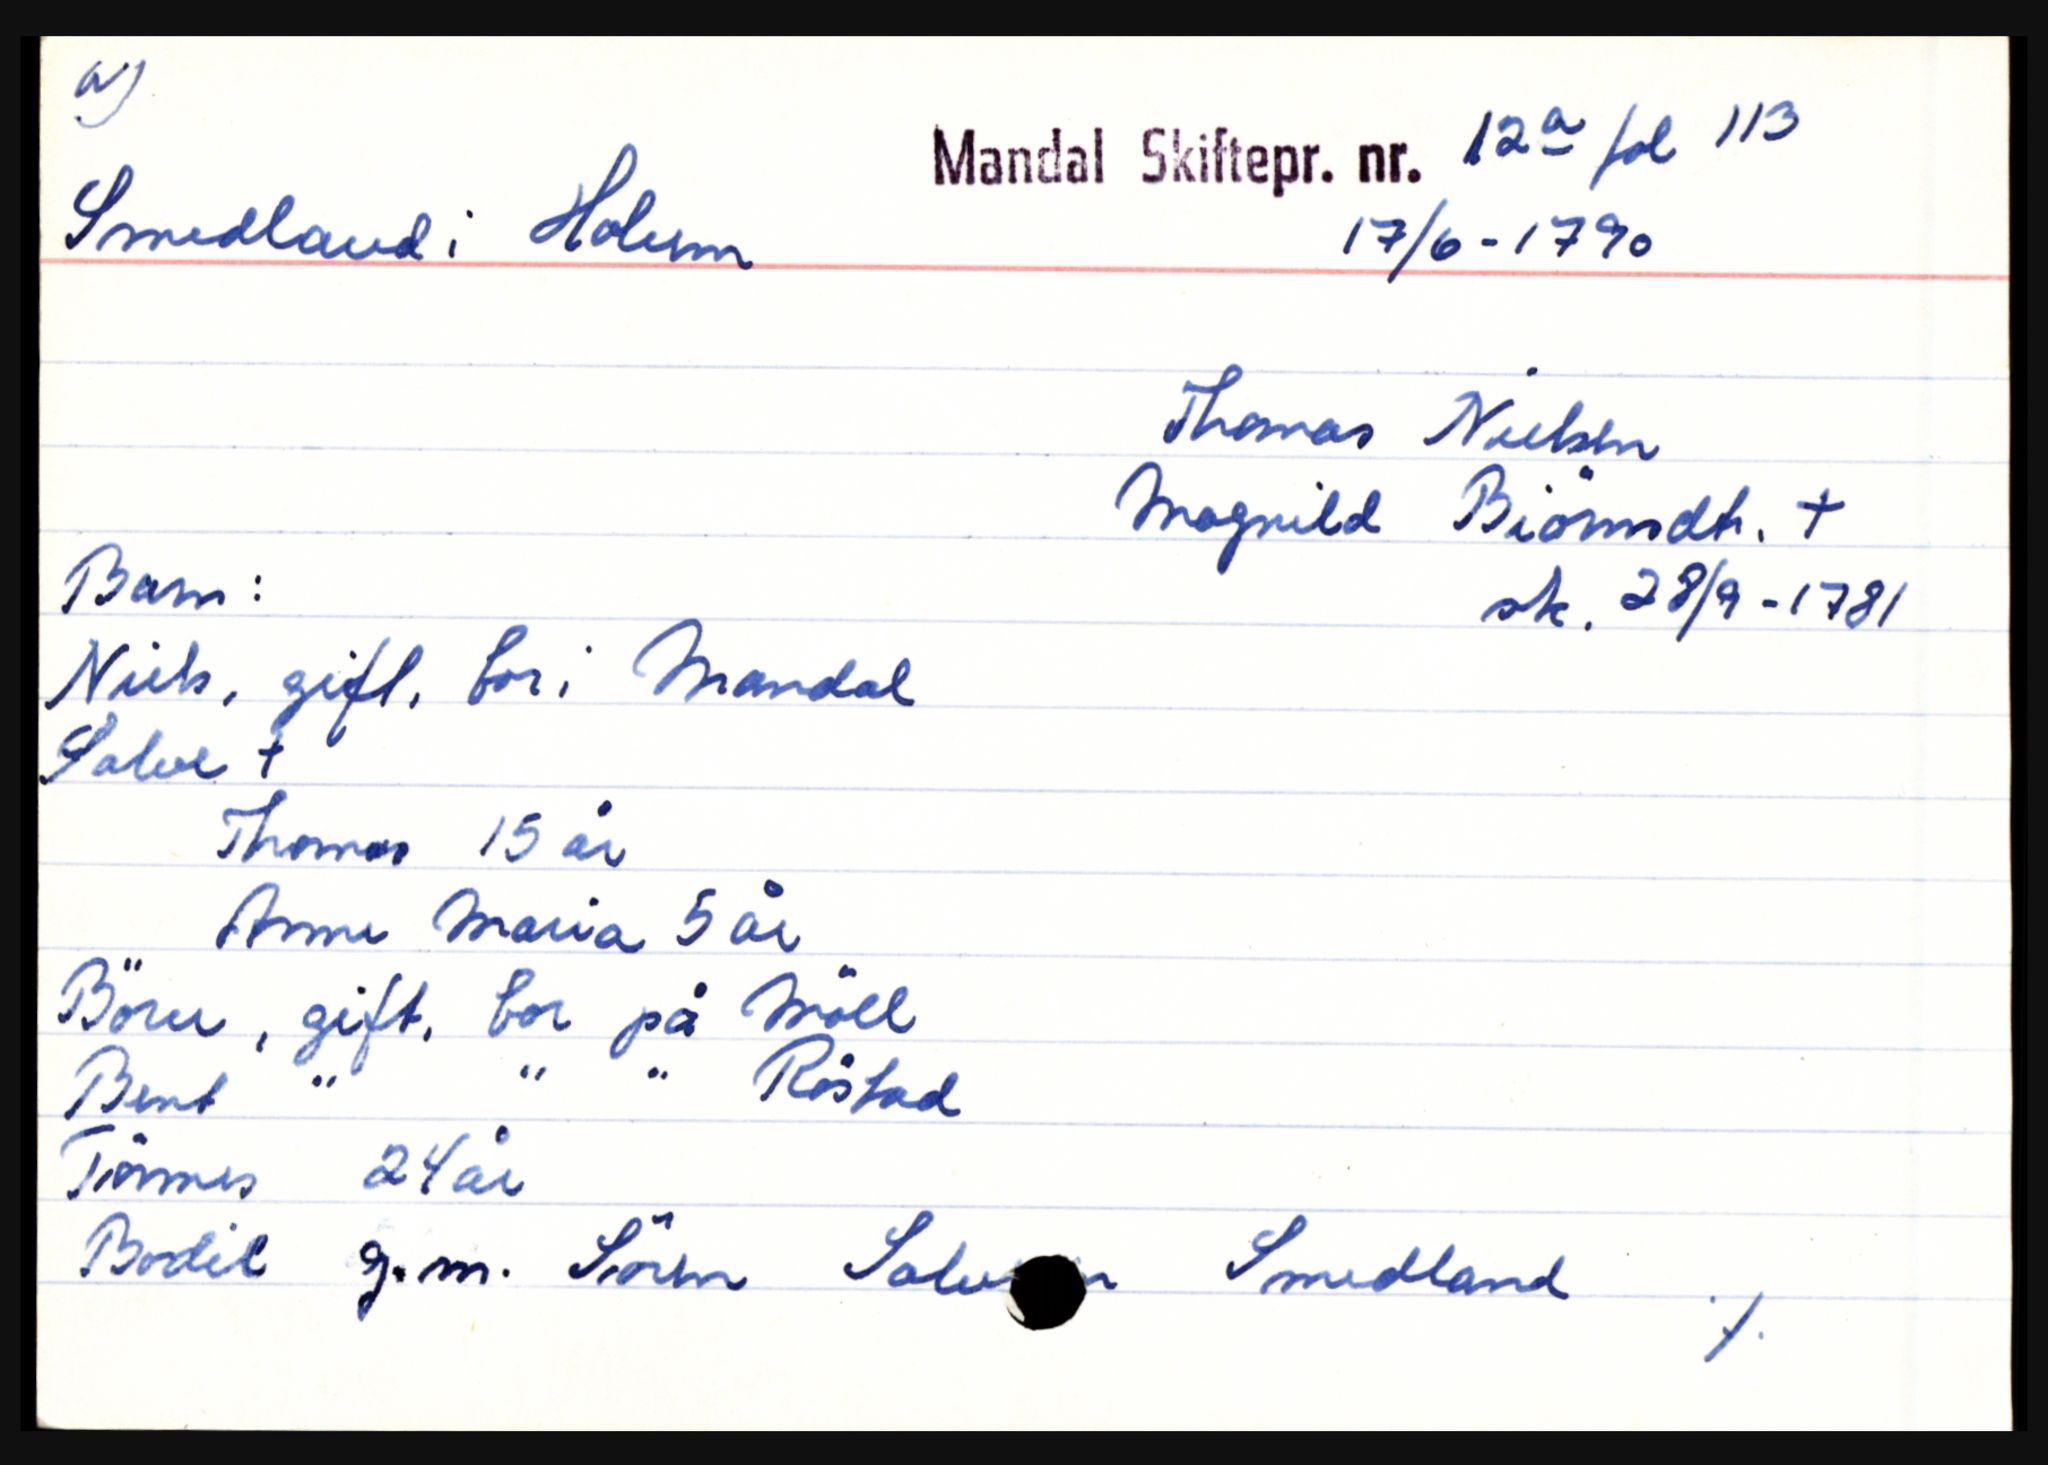 a)
Mandal Skiftepr. nr. 12a fol 113
Smedland i Holum
17/6-1790
Thomas Nielsen
Magnild Biörnsdtr. +
Barn:
sk. 28/9-1781
Niels, gift, bor i Mandal
Salve +
Thomas 15 år
Anne Maria 5 år
Börer, gift, bor på Möll
Bent " " " Röstad
Tönnes 24 år
Bodil g.m. Sören Salvesen Smedland
./.